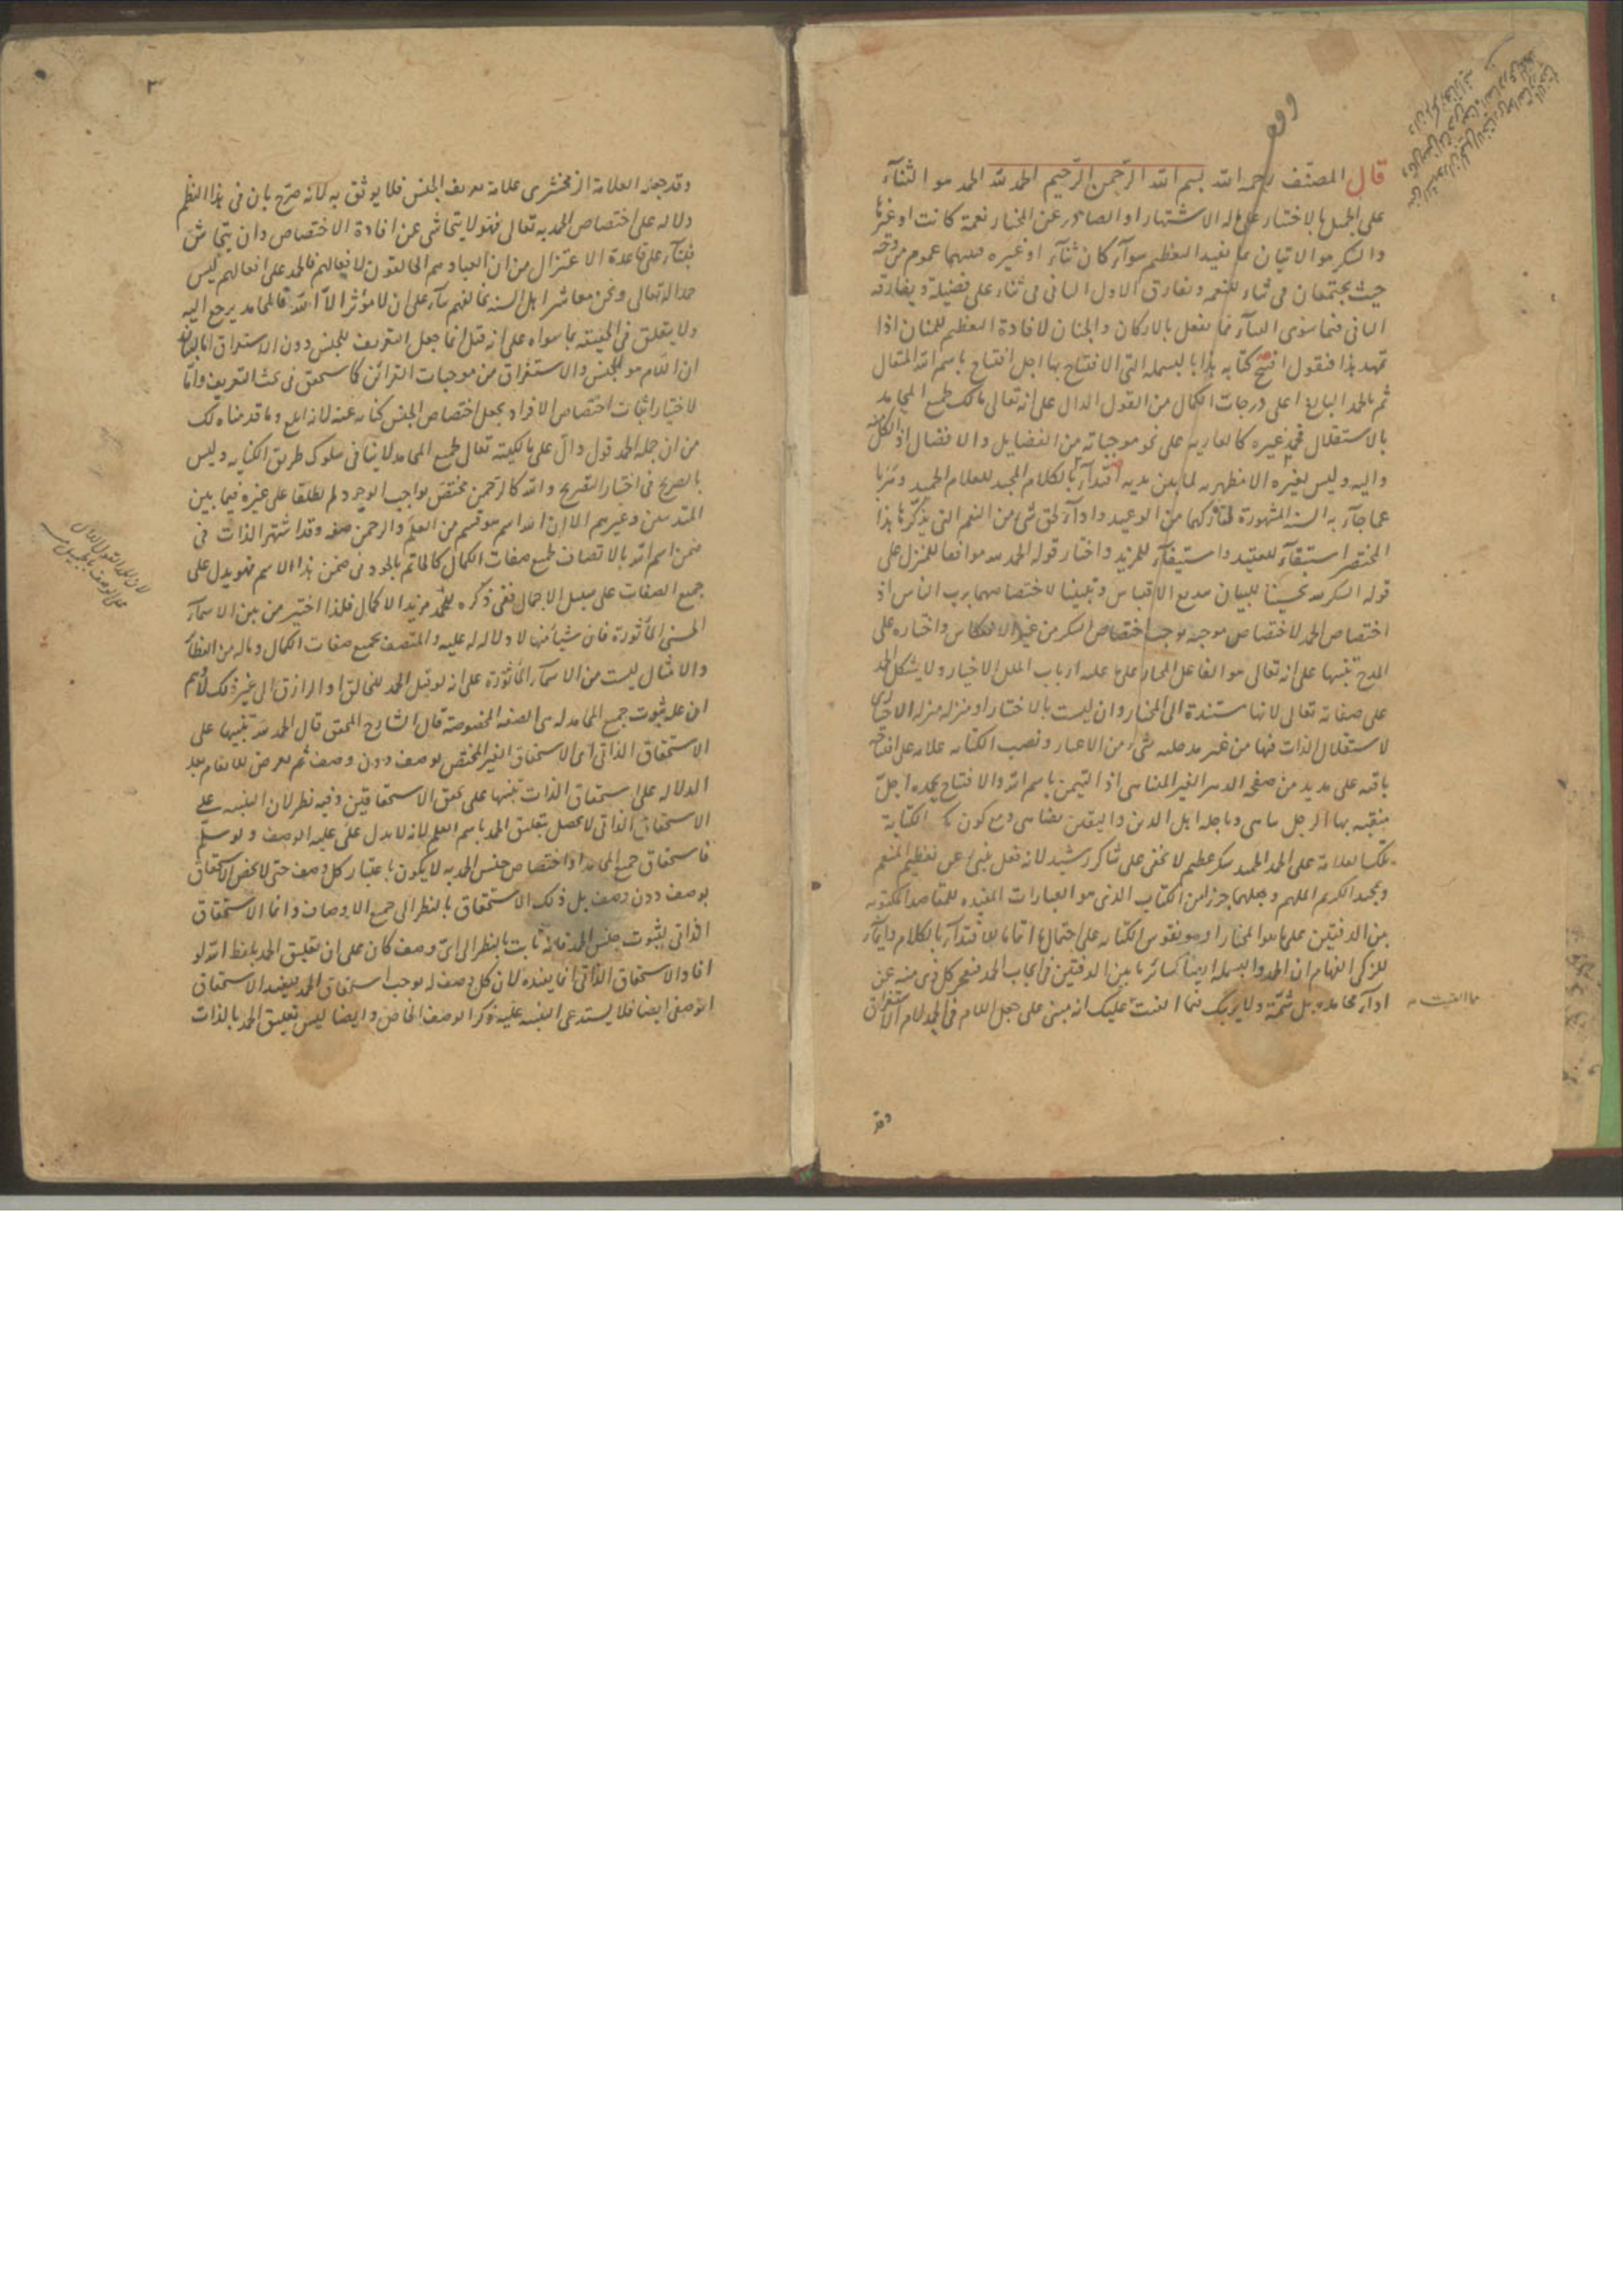 قال المصنّف رحمه الله بسم الله الرّحمن الرّحيم الحمد لله الحمد هو الثنآء
على الجميل بالاختيار على ما له الاشتهار او الصادر عن المختار نعمة كانت او غيرها
والشكر هو الاتيان بما يفيد التعظيم سوآء كان ثنآء او غيره فبينهما عموم من وجه
حيث يجتمعان فى ثناء للنعمة ويفارق الاول الثانى فى ثناء على فضيلة ويفارقه
الثانى فيما سوى الثنآء مما يفعل بالاركان والجنان لافادة التعظيم للمنان اذا
تمهد هذا فنقول افتتح كتابه هذا بالبسملة التى الافتتاح بها اجل افتتاح باسم الله المتعال
ثم بالحمد البالغ اعلى درجات الكمال من القول الدال على انه تعالى مالك لجميع المحامد
بالاستقلال فحمد غيره كالعارية على نحو موجباته من الفضايل والافضال اذ الكل منه
واليه وليس لغيره الا مظهرية لما بين يديه اقتدآء بالكلام المجيد للعلام الحميد
عما جآء به السنة المشهورة لتاركهما من الوعيد وادآء لحق شئ من النعم التى يذكرها هذا
المختصر استبقآء للعتيد واستيفآء للمزيد واختار قوله الحمد لله موافقا للمنزل على
قوله الشكر لله تحسينا للبيان ببديع الاقتباس وتبيينا لاختصاصهما برب الناس اذ
اختصاص الحمد لاختصاص موجبه يوجب اختصاص الشكر من غير الانعكاس واختاره على
المدح تنبيها على انه تعالى هو الفاعل المختار على ما عليه ارباب الملل الاخيار ولا يشكل الحمد
على صفاته تعالى لانها مستندة الى المختار وان ليست بالاختيار او منزله منزلة الاختيارى
لاستقلال الذات فيها من غير مدخلية شئ من الاغيار ونصب الكتابه علامة على افتتاحه
باقيه على مديد من صفحة الدهر الغير المتناهى اذ التيمن باسم الله والافتتاح بحمده اجل
منقبة يباهى بها اهل الدين واليقين ومع كون تلك الكتابة
تلك العلامة على الحمد الحميد شكر عظيم لا يخفى على شاكر رشيد لانه فعل ينبئ عن تعظيم المنعم
وتمجيد الكريم الملهم وجعلهما جزء من الكتاب الذى هو العبارات المفيده للمقاصد المكنونه
بين الدفتين على ما هو المختار او هو نقوش الكتابه على احتمال اقتدآء بالكلام وايمآء
للزكى الفهام ان الحمد والبسملة ايضا كسائر ما بين الدفتين فى ايجاب الحمد فيعجز كل ذى منه عن
ادآء محامده بل شمّة ولا يريبك فيما القيت عليك انه مبنى على جعل اللام فى الحمد لام الاستغراق
مما القيت
وقد
٣
وقد جعله العلامة الزمخشرى علامة تعريف الجنس فلا يوثق به لانه صرّح بان فى هذا النظم
دلالة على اختصاص الحمد به تعالى فهو لا يتحاشى عن افادة الاختصاص وان يتحاش
فبنآء على قاعدة الاعتزال من ان العباد هم الخالقون لافعالهم فالحمد على افعالهم ليس
حمدا له تعالى ونحن معاشر اهل السنة نخالفهم بنآء على ان لا مؤثر الا الله فالمحامد يرجع اليه
ولا يتعلق فى الحقيقة بما سواه على انه قيل انما جعل التعريف للجنس دون الاستغراق
ان اللام هو للجنس والاستغراق من موجبات القرائن كما سيحقق فى بحث التعريف وامّا
لاختيار اثبات اختصاص الافراد بجعل اختصاص الجنس كناية عنه لانه ابلغ وما قدمناه لك
من ان جملة الحمد قول دال على مالكيته تعالى لجميع المحامد لا ينافى سلوك طريق الكناية وليس
بالصريح فى اختيار التصريح والله كالرّحمن مختص بواجب الوجود لم يطلقا على غيره فيما بين
المتدينين وغيرهم الا ان الله اسم هو قسم من العلم والرحمن صفة وقد اشتهر الذات فى
ضمن اسم الله بالاتصاف لجميع صفات الكمال كالحاتم بالجود فى ضمن هذا الاسم فهو يدل على
جميع الصفات على سبيل الاجمال ففى ذكره للحمد مزيد الاكمال فلذا اختير من بين الاسمآء
الحسنى المأثورة فان شيأ منها لا دلالة له عليه والمتصف بجميع صفات الكمال وماله من النظائر
والامثال ليست من الاسمآء المأثورة على انه لو قيل الحمد للخالق او الرازق الى غير ذلك لأوهم
ان علة ثبوت جميع المحامد له هى الصفة المخصوصة قال الشارح المحقق قال الحمد لله تنبيها على
الاستحقاق الذاتى اى الاستحقاق الغير المختص بوصف دون وصف ثم تعرض للانعام بعد
الدلالة على استحقاق الذات تنبيها على تحقق الاستحقاقين وفيه نظر لان التنبيه على
الاستحقاق الذاتى لا يحصل بتعليق الحمد باسم العلم لانه لا يدل على علية الوصف ولو سلم
فاستحقاق جميع المحامد او اختصاص جنس الحمد به لا يكون باعتبار كل وصف حتى لا يخص الاستحقاق
بوصف دون وصف بل ذلك الاستحقاق بالنظر الى جميع الاوصاف وانما الاستحقاق
الذاتى لثبوت جنس الحمد فانه ثابت بالنظر الى اىّ وصف كان على ان تعليق الحمد بلفظ الله لو
افاد الاستحقاق الذاتى انما يفيده لان كل وصف له يوجب استحقاق الحمد فيفيد الاستحقاق
الوصفى ايضا فلا يستدعى التنبيه عليه ذكر الوصف الخاص وايضا ليس تعليق الحمد بالذات